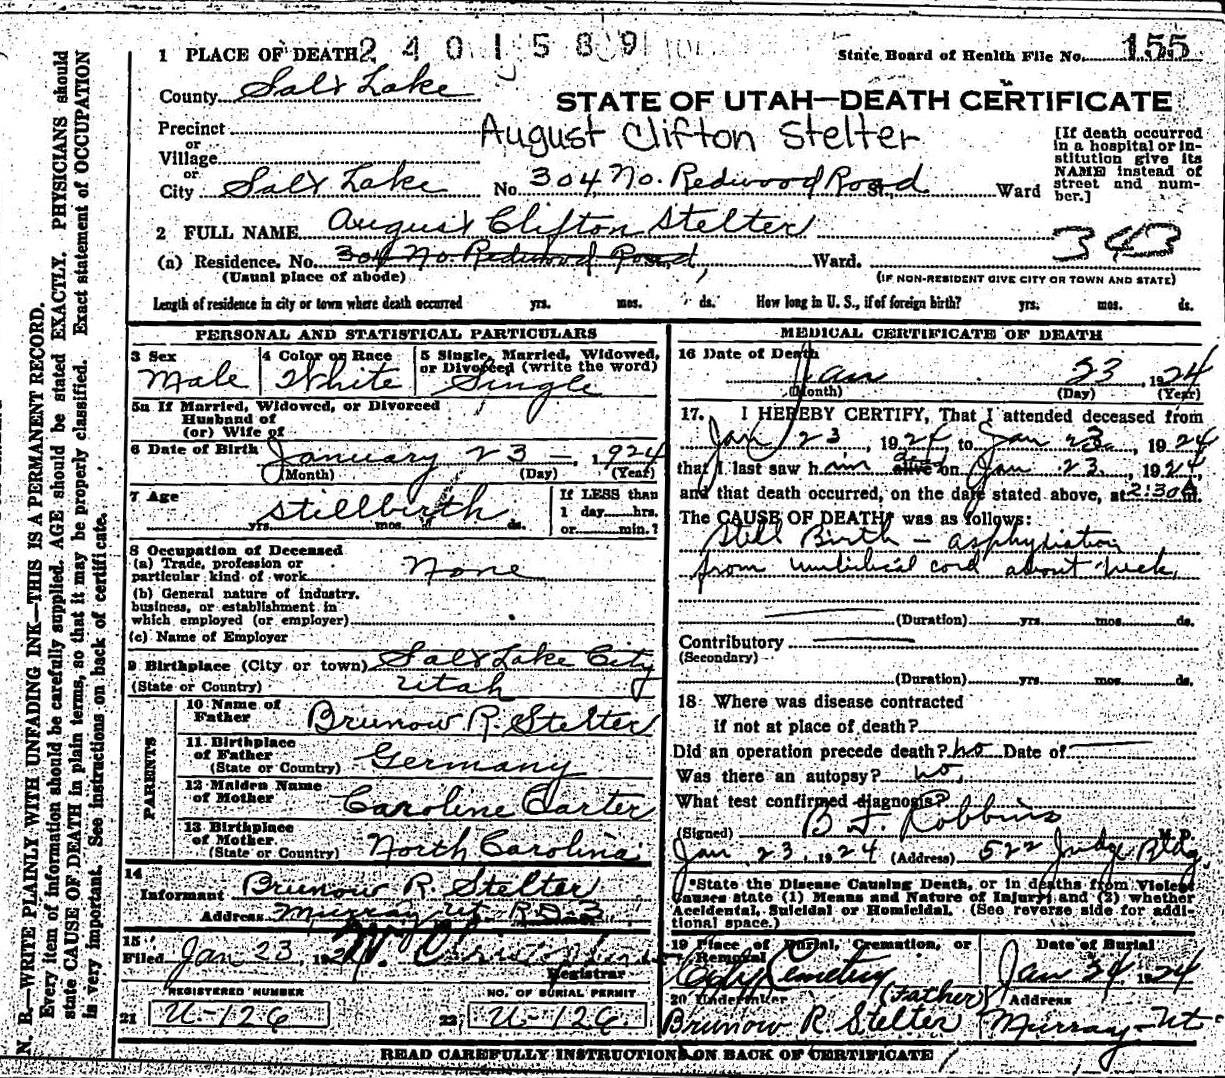 1 PLACE OF DEATH 2401589 State Board of Health File No. 155
County Salt Lake
STATE OF UTAH—DEATH CERTIFICATE
Precinct
August Clifton Stelter
or
Village
or
City Salt Lake No. 304 No. Redwood Road St., Ward
[If death occurred
in a hospital or in-
stitution give its
NAME instead of
street and num-
ber.]
2 FULL NAME August Clifton Stelter
343
(a) Residence. No. 304 No Redwood Road, Ward.
(Usual place of abode) (IF NON-RESIDENT GIVE CITY OR TOWN AND STATE)
Length of residence in city or town where death occurred yrs. mos. ds. How long in U. S., if of foreign birth? yrs. mos. ds.
PERSONAL AND STATISTICAL PARTICULARS
3 Sex 4 Color or Race 5 Single, Married, Widowed,
or Divorced (write the word)
Male White Single
5a If Married, Widowed, or Divorced
Husband of
(or) Wife of
6 Date of Birth January 23 – , 1924
(Month) (Day) (Year)
7 Age stillbirth
yrs. mos. ds.
If LESS than
1 day hrs.
or min.?
8 Occupation of Deceased
(a) Trade, profession or
particular kind of work None
(b) General nature of industry,
business, or establishment in
which employed (or employer)
(c) Name of Employer
9 Birthplace (City or town) Salt Lake City
(State or Country) Utah
PARENTS
10 Name of
Father Brunow R. Stelter
11 Birthplace
of Father
(State or Country) Germany
12 Maiden Name
of Mother Caroline Carter
13 Birthplace
of Mother
(State or Country) North Carolina
14
Informant Brunow R. Stelter
Address Murray Ut R.D-3
15
Filed Jan 23, 1924
Registrar
REGISTERED NUMBER NO. OF BURIAL PERMIT
21 U-126 22 U-126.
MEDICAL CERTIFICATE OF DEATH
16 Date of Death
Jan 23, 1924
(Month) (Day) (Year)
17. I HEREBY CERTIFY, That I attended deceased from
Jan 23, 1924 to Jan 23, 1924
that I last saw him alive on Jan 23, 1924,
and that death occurred, on the date stated above, at 2:30 A m.
The CAUSE OF DEATH* was as follows:
Still Birth – asphyxiation
from umbilical cord about neck
(Duration) yrs. mos. ds.
Contributory
(Secondary)
(Duration) yrs. mos. ds.
18 Where was disease contracted
if not at place of death?
Did an operation precede death? no Date of
Was there an autopsy? no.
What test confirmed diagnosis?
(Signed) B F. Robbins M.D.
Jan 23, 1924 (Address) 522 Judge Bldg.
*State the Disease Causing Death, or in deaths from Violent
Causes state (1) Means and Nature of Injury; and (2) whether
Accidental, Suicidal or Homicidal. (See reverse side for addi-
tional space.)
19 Place of Burial, Cremation, or Date of Burial
Removal
City Cemetery Jan 24 1924
20 Undertaker (Father) Address
Brunow R Stelter Murray-Ut.
READ CAREFULLY INSTRUCTIONS ON BACK OF CERTIFICATE
N. B.—WRITE PLAINLY WITH UNFADING INK—THIS IS A PERMANENT RECORD.
Every item of information should be carefully supplied. AGE should be stated EXACTLY. PHYSICIANS should
state CAUSE OF DEATH in plain terms, so that it may be properly classified. Exact statement of OCCUPATION
is very important. See instructions on back of certificate.